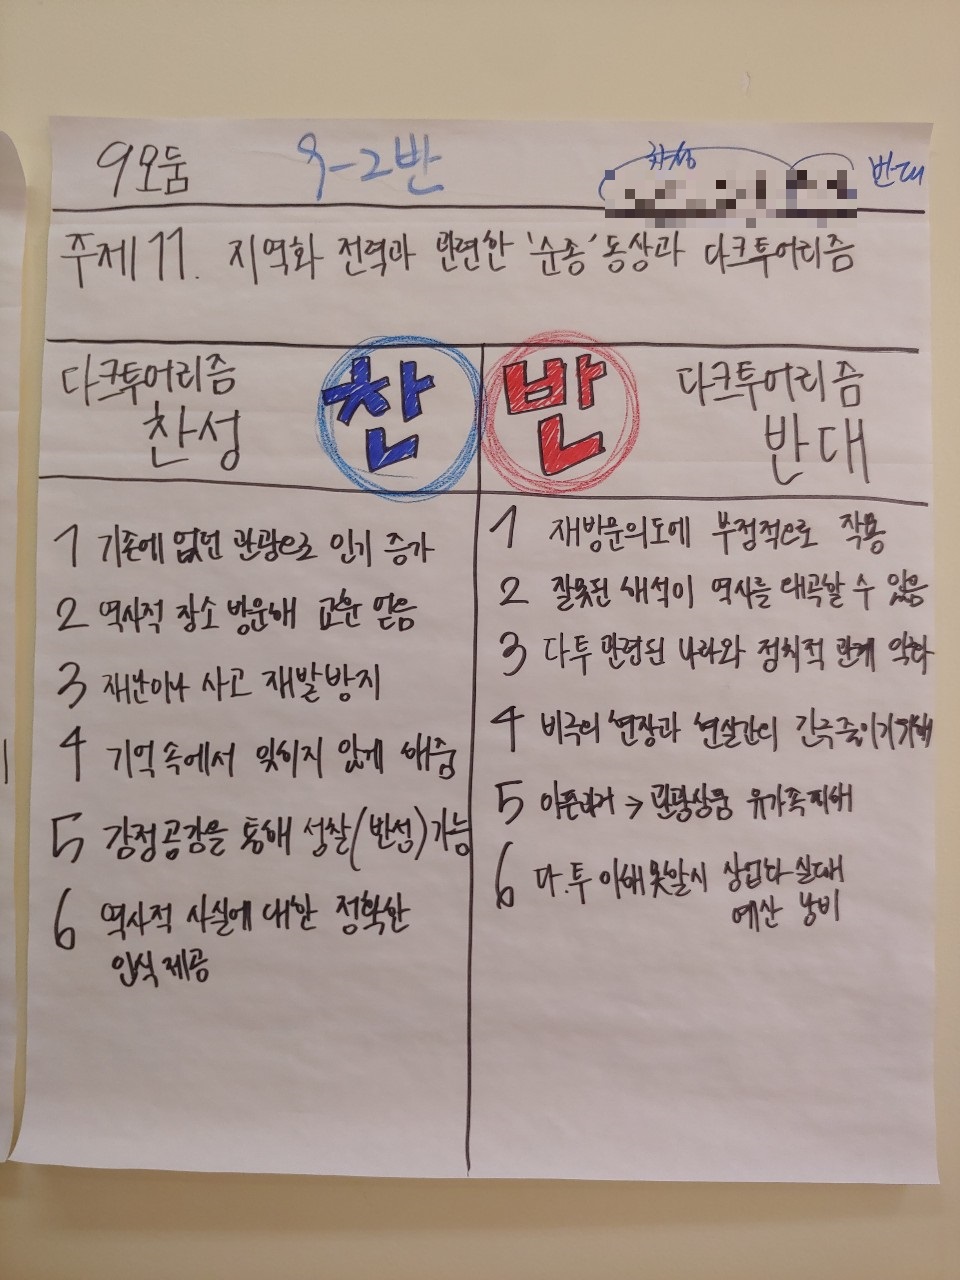 9모둠
9-2반
찬성
반대
주제 11. 지역화 전략과 관련한 '순종' 동상과 다크투어리즘
다크투어리즘
찬성
찬
반
다크투어리즘
반대
1 기존에 없던 관광으로 인기 증가
2 역사적 장소 방문해 교훈 얻음
3 재난이나 사고 재발방지
4 기억 속에서 잊히지 않게 해줌
5 감정공감을 통해 성찰(반성)가능
6 역사적 사실에 대한 정확한
인식 제공
1 재방문의도에 부정적으로 작용
2 잘못된 해석이 역사를 왜곡할 수 있음
3 다투 관련된 나라와 정치적 관계 악화
4 비극의 현장과 현실간의 간극
5 아픈과거 → 관광상품 유가족피해
6 다.투 이해 못할시 상업화 실대
예산 낭비